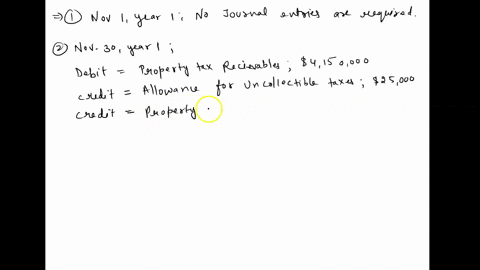 ⇒ ① Nov 1, year 1 ; No Journal entries are required.
② Nov. 30, year 1 ;
Debit = Property tax Recievables ; $4,150,000
credit = Allowance for Uncollectible taxes ; $25,000
credit = Property